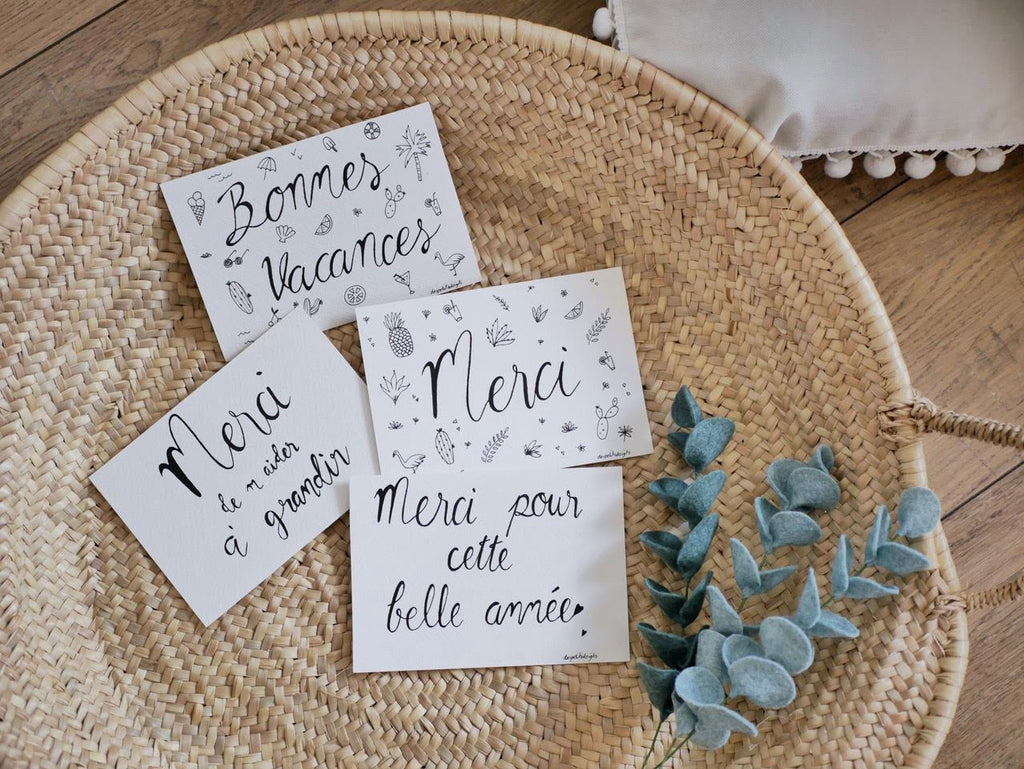 Bonnes
Vacances
Merci
Merci
de m'aider
à grandir
Merci pour
cette
belle année